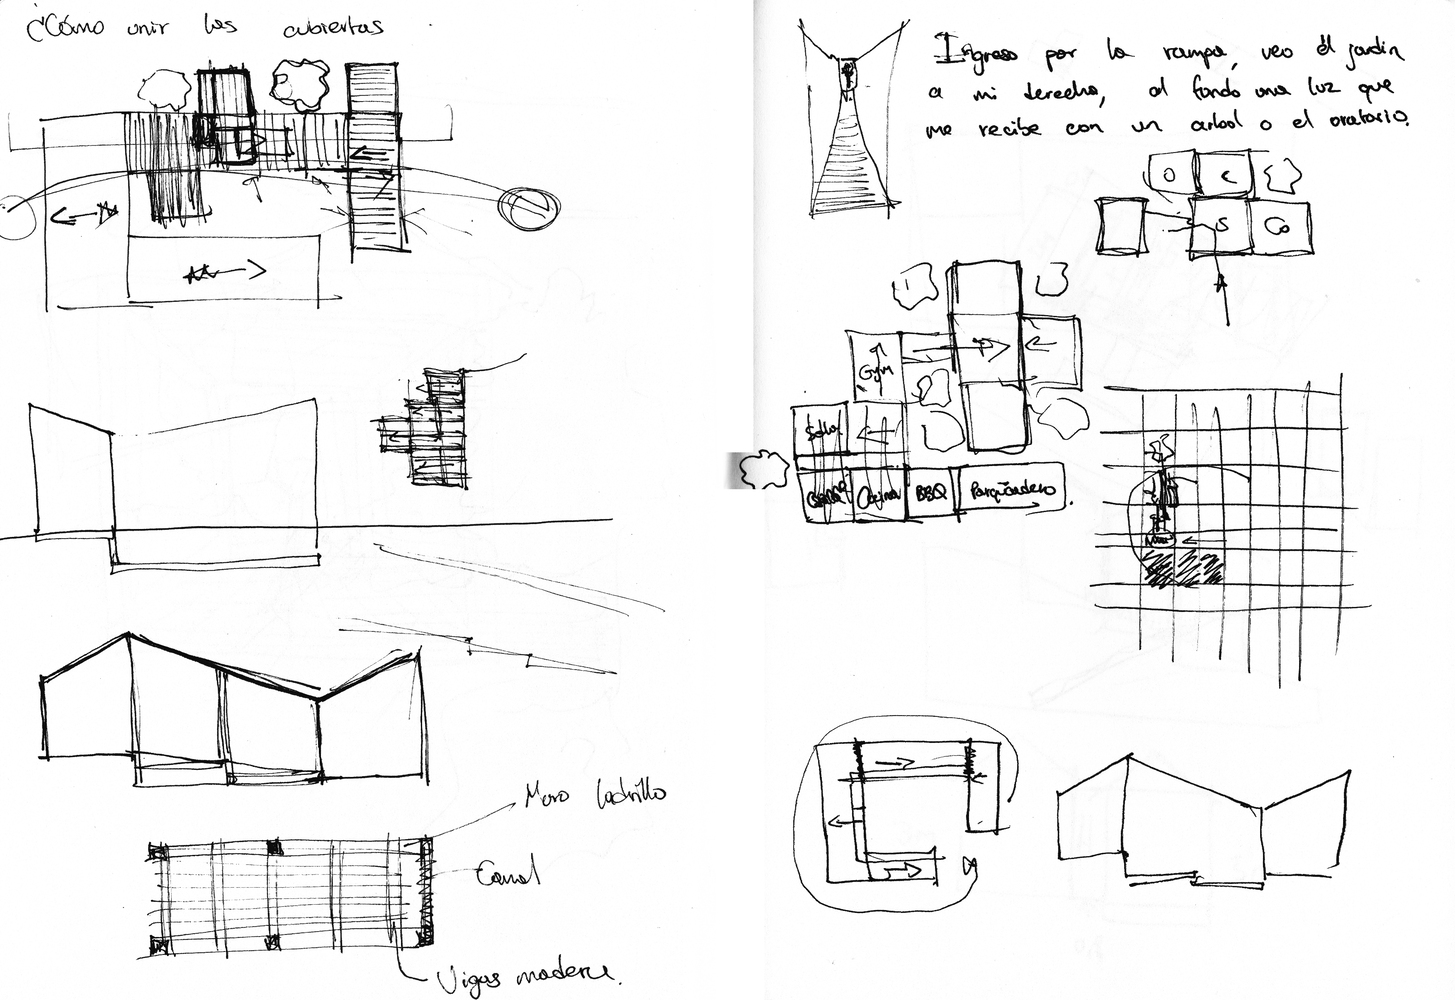 ¿Cómo unir las cubiertas
Muro ladrillo
Canal
Vigas madera.
Ingreso por la rampa, veo él jardín
a mi derecha, al fondo una luz que
me recibe con un arbol o el oratorio.
O C
S Co
Gym
Sala
Cocina BBQ Parqueadero